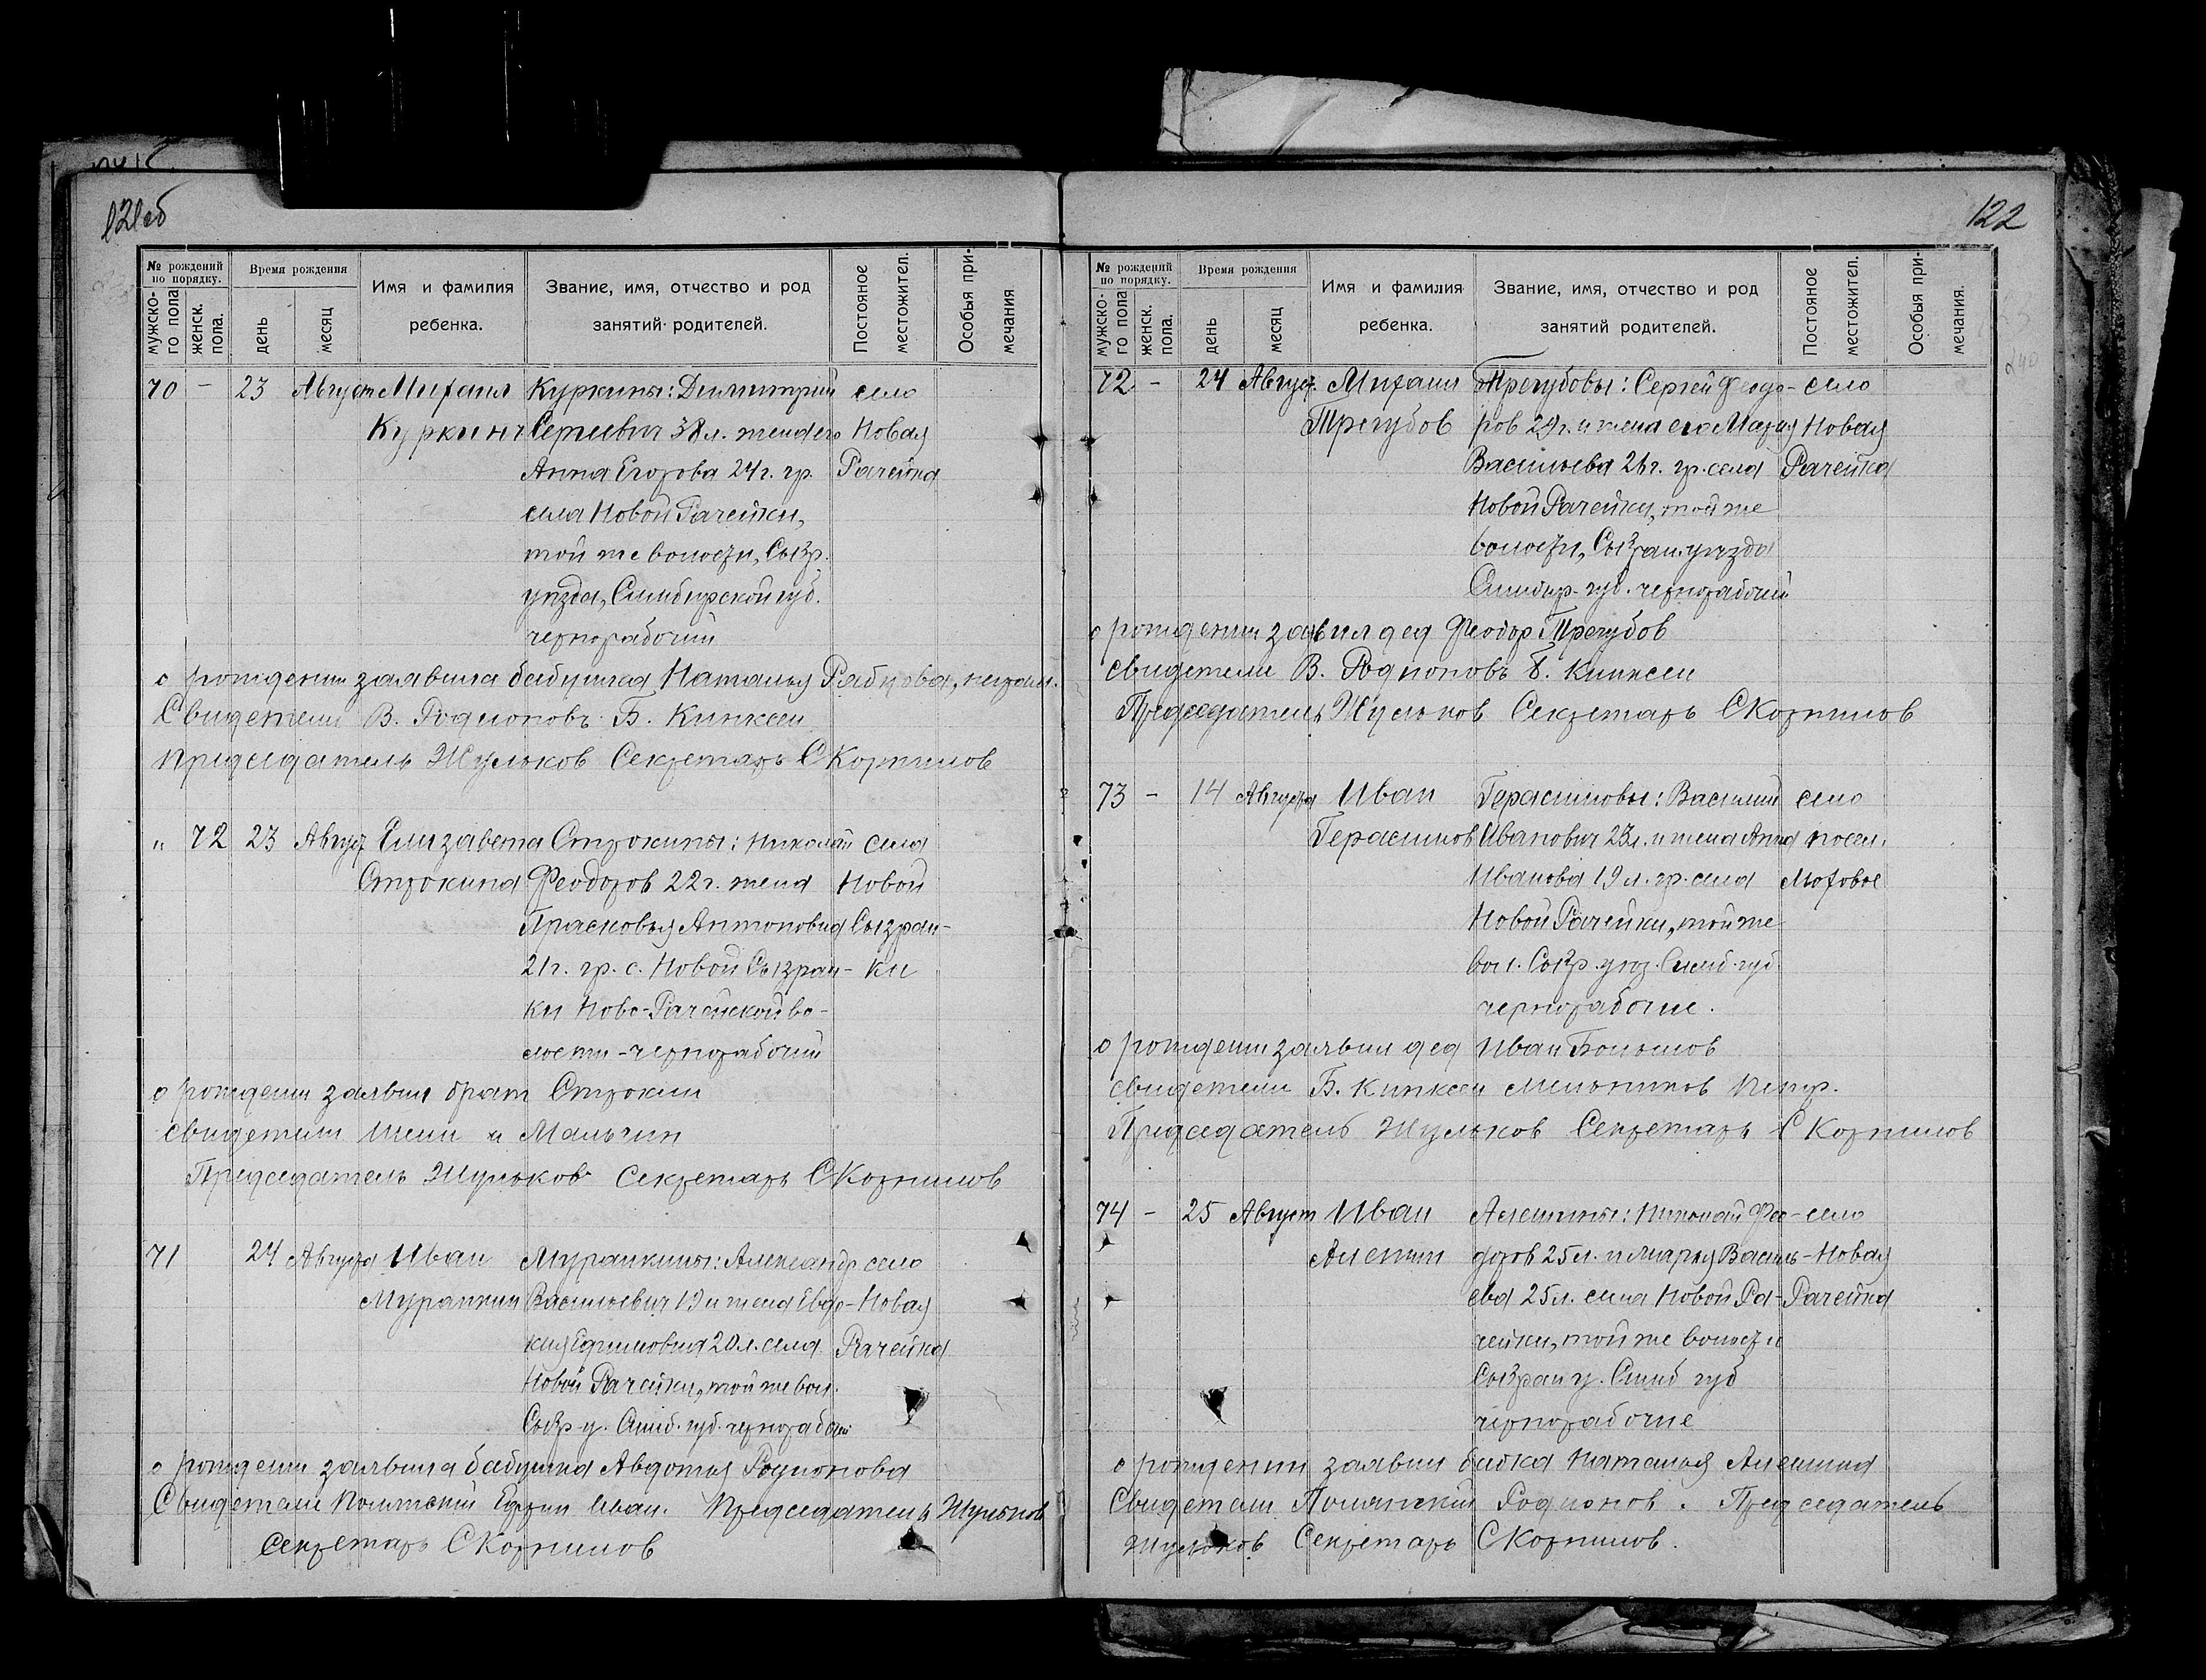 121об
№ рождений по порядку.
мужско-го пола
женск. пола.
Время рождения
день
месяц
Имя и фамилия ребенка.
Звание, имя, отчество и род занятий родителей.
Постояное местожител.
Особыя при-мечания
70 — 23 Август Михаил Куркины: Димитрий село
Куркинъ Сергиевич 38 л. жена его Новая
Анна Егорова 24 г. гр. Рачейка
села Новой Рачейки,
той же волости, Сызр.
уезда, Симбирской губ.
чернорабочий
о рождении заявила бабушка Наталья
Свидетели В. Родионовъ Б. Кинксен
председатель Жульков Секретарь С Корнилов
" 72 23 Август Елизавета Строкины: Николай села
Строкина Феодоров 22 г. жена Новой
Прасковья Антоновна Сызран-
21 г. гр. с. Новой Сызран- ки
ки Ново-Рачейской во-
лости - чернорабочий
о рождении заявил брат Строкин
свидетели и Мальчин
Председатель Жульков Секретарь С Корнилов
71 24 Августа Иван Муранкины: Александр село
Муранкин Васильевич 19 и жена Евдо- Новая
кия Ефимовна 20 л. села Рачейка
Новой Рачейки, той же вол.
Сызр. у. Симб. губ. чернорабочий
о рождении заявила бабушка Авдотья Родионова
Свидетели Ефрем Иван. Председатель Жульков
Секретарь С Корнилов
122
№ рождений по порядку.
мужско-го пола
женск. пола.
Время рождения
день
месяц
Имя и фамилия ребенка.
Звание, имя, отчество и род занятий родителей.
Постояное местожител.
Особыя при-мечания.
72 — 24 Август Михаил Трегубовы: Сергей Феодо- село
Трегубов ров 29 г. и жена его Мария Новая
Васильева 26 г. гр. села Рачейка
Новой Рачейки, той же
волости, Сызран. уезда
Симбир. губ. чернорабочий
о рождении заявил дед Феодор Трегубов
свидетели В. Родионовъ Б. Кинксен
Председатель Жульков Секретарь С Корнилов
73 — 14 Августа Иван Герасимовы: Василий село
Герасимов Иванович 23 л. и жена Анна посел.
Иванова 19 л. гр. села Моховое
Новой Рачейки, той же
вол. Сызр. уез. Симб. губ.
чернорабочие.
о рождении заявил дед Иван Большов
свидетели Б. Кинксен Мельников Петр.
Председатель Жульков Секретарь С Корнилов
74 — 25 Август Иван Алешины: Николай Фео- село
Алешин доров 25 л. и Марья Василь- Новая
ева 25 л. села Новой Ра- Рачейка
чейки, той же волости
Сызран у. Симб губ
чернорабочие
о рождении заявил бабка Наталья Алешина
Свидетели Родионов. Председатель
Жульков Секретарь С Корнилов.